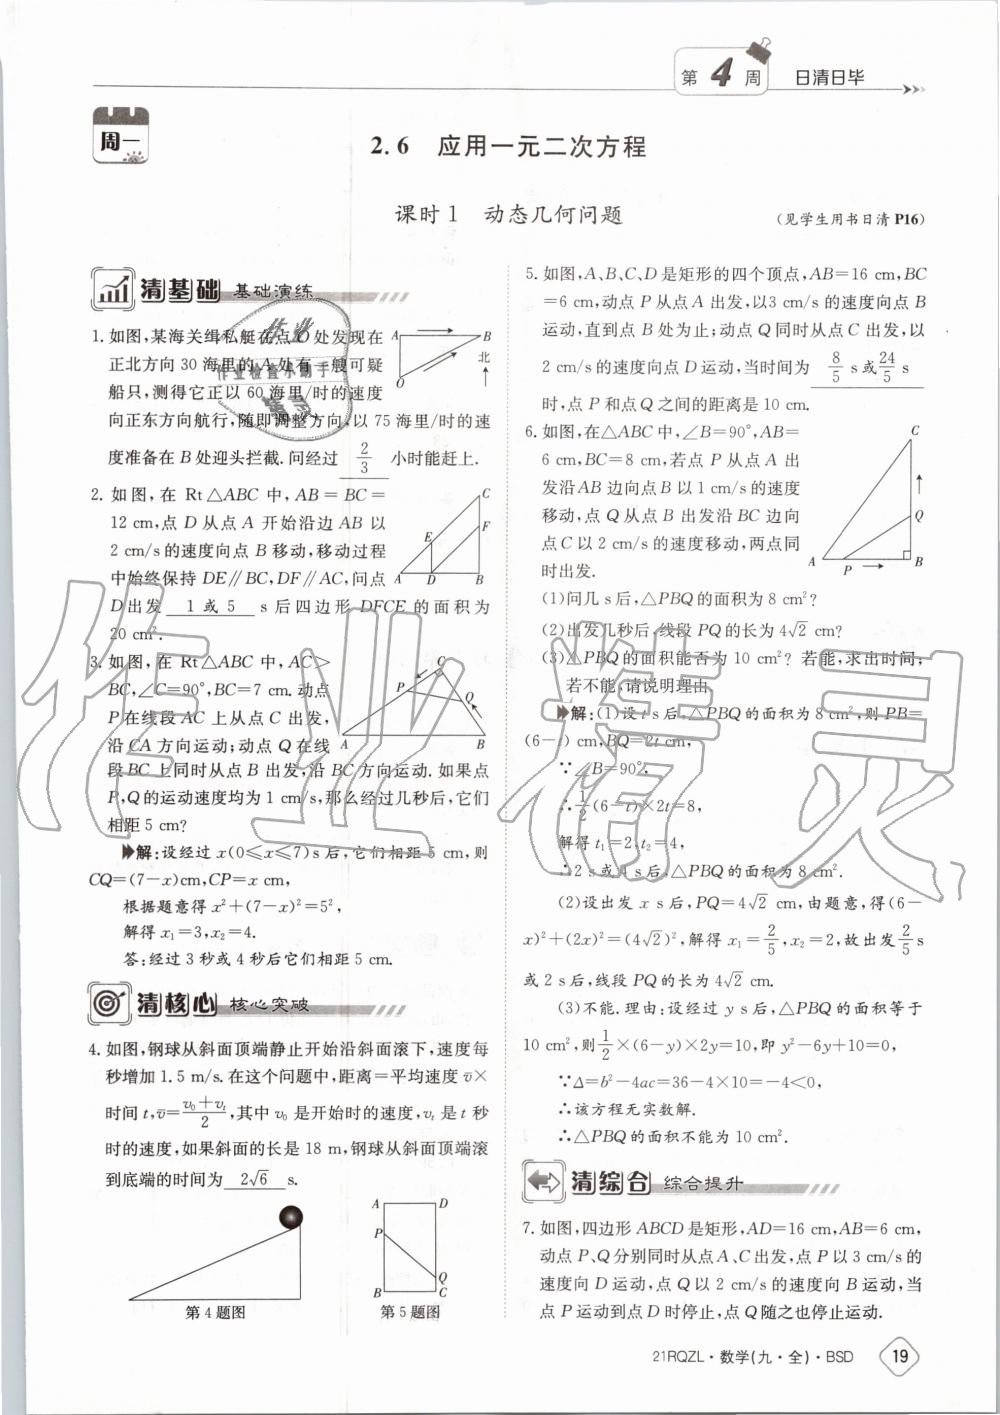 第4周 日清日毕
周一
2.6 应用一元二次方程
课时1 动态几何问题
(见学生用书日清P16)
清基础 基础演练
1. 如图,某海关缉私艇在点O处发现在
正北方向30海里的A处有一艘可疑
船只,测得它正以60海里/时的速度
向正东方向航行,随即调整方向,以75海里/时的速
度准备在B处迎头拦截.问经过 2/3 小时能赶上.
A B 北 O
2. 如图,在 Rt△ABC 中,AB=BC=
12 cm,点 D 从点 A 开始沿边 AB 以
2 cm/s 的速度向点 B 移动,移动过程
中始终保持 DE∥BC,DF∥AC,问点
D出发 1或5 s 后四边形 DFCE 的面积为
20 cm².
C F E A D B
3. 如图,在 Rt△ABC 中,AC>
BC,∠C=90°,BC=7 cm.动点
P在线段 AC 上从点 C 出发,
沿 CA 方向运动;动点 Q 在线
段 BC 上同时从点 B 出发,沿 BC 方向运动.如果点
P,Q的运动速度均为 1 cm/s,那么经过几秒后,它们
相距 5 cm?
C P Q A B
解:设经过 x(0≤x≤7)s 后,它们相距 5 cm,则
CQ=(7-x)cm,CP=x cm,
根据题意得 x²+(7-x)²=5²,
解得 x₁=3,x₂=4.
答:经过3秒或4秒后它们相距 5 cm.
清核心 核心突破
4. 如图,钢球从斜面顶端静止开始沿斜面滚下,速度每
秒增加 1.5 m/s.在这个问题中,距离=平均速度 v̄×
时间 t,v̄=(v₀+vₜ)/2,其中 v₀ 是开始时的速度,vₜ 是 t 秒
时的速度,如果斜面的长是 18 m,钢球从斜面顶端滚
到底端的时间为 2√6 s.
第4题图
A D P Q B C
第5题图
5. 如图,A、B、C、D是矩形的四个顶点,AB=16 cm,BC
=6 cm,动点 P 从点 A 出发,以3 cm/s 的速度向点 B
运动,直到点 B 处为止;动点 Q 同时从点 C 出发,以
2 cm/s 的速度向点 D 运动,当时间为 8/5 s或24/5 s
时,点 P 和点 Q 之间的距离是 10 cm.
6. 如图,在△ABC 中,∠B=90°,AB=
6 cm,BC=8 cm,若点 P 从点 A 出
发沿 AB 边向点 B 以 1 cm/s 的速度
移动,点 Q 从点 B 出发沿 BC 边向
点 C 以 2 cm/s 的速度移动,两点同
时出发.
C Q A P B
(1)问几 s 后,△PBQ 的面积为 8 cm²?
(2)出发几秒后,线段 PQ 的长为 4√2 cm?
(3)△PBQ 的面积能否为 10 cm²? 若能,求出时间;
若不能,请说明理由.
解:(1)设 t s 后,△PBQ 的面积为 8 cm²,则 PB=
(6-t) cm,BQ=2t cm,
∵∠B=90°,
∴1/2(6-t)×2t=8,
解得 t₁=2,t₂=4,
∴2 s 或 4 s 后,△PBQ 的面积为 8 cm².
(2)设出发 x s 后,PQ=4√2 cm,由题意,得(6-
x)²+(2x)²=(4√2)²,解得 x₁=2/5,x₂=2,故出发 2/5 s
或 2 s 后,线段 PQ 的长为 4√2 cm.
(3)不能.理由:设经过 y s 后,△PBQ 的面积等于
10 cm²,则 1/2×(6-y)×2y=10,即 y²-6y+10=0,
∵Δ=b²-4ac=36-4×10=-4<0,
∴该方程无实数解.
∴△PBQ 的面积不能为 10 cm².
清综合 综合提升
7. 如图,四边形 ABCD 是矩形,AD=16 cm,AB=6 cm,
动点 P、Q 分别同时从点 A、C 出发,点 P 以 3 cm/s 的
速度向 D 运动,点 Q 以 2 cm/s 的速度向 B 运动,当
点 P 运动到点 D 时停止,点 Q 随之也停止运动.
21RQZL·数学(九·全)·BSD 19
作业精灵